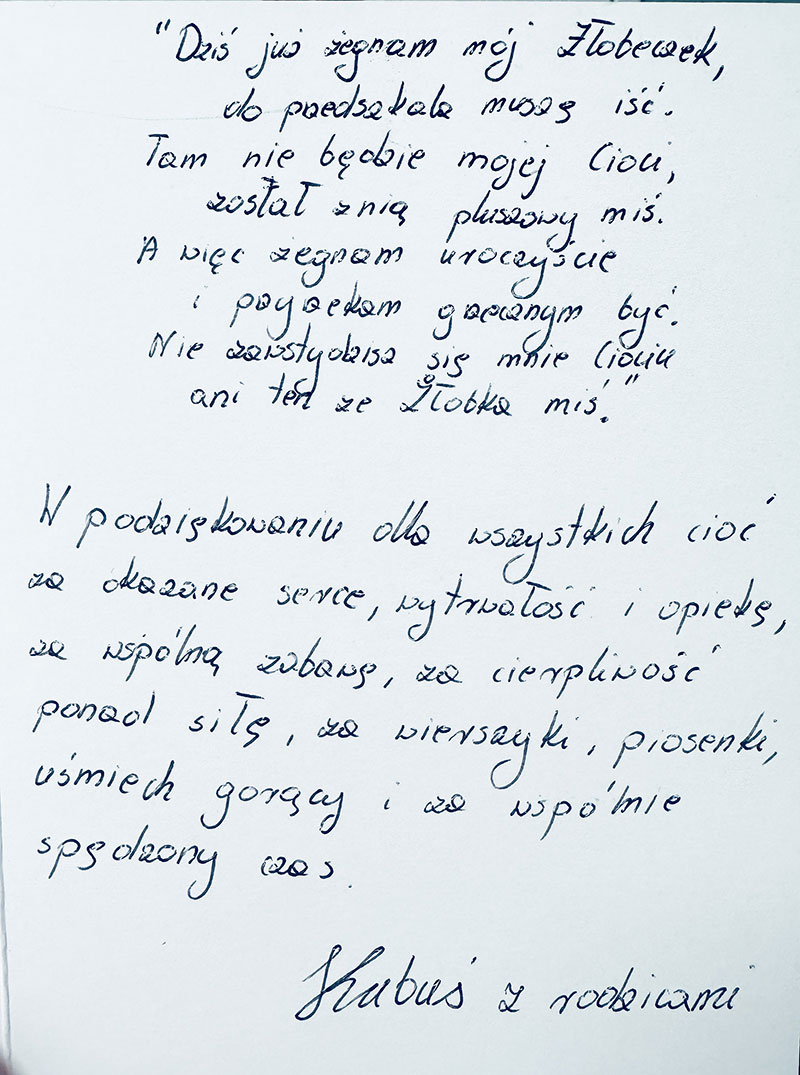 "Dziś już żegnam mój Żłobeczek,
do przedszkola muszę iść.
Tam nie będzie mojej Cioci,
został z nią pluszowy miś.
A więc żegnam uroczyście
i przyrzekam grzecznym być.
Nie zawstydzisz się mnie Ciociu
ani ten ze Żłobka miś."
W podziękowaniu dla wszystkich cioć
za okazane serce, wytrwałość i opiekę,
za wspólną zabawę, za cierpliwość
ponad siłę, za wierszyki, piosenki,
uśmiech gorący i za wspólnie
spędzony czas.
Kubuś z rodzicami